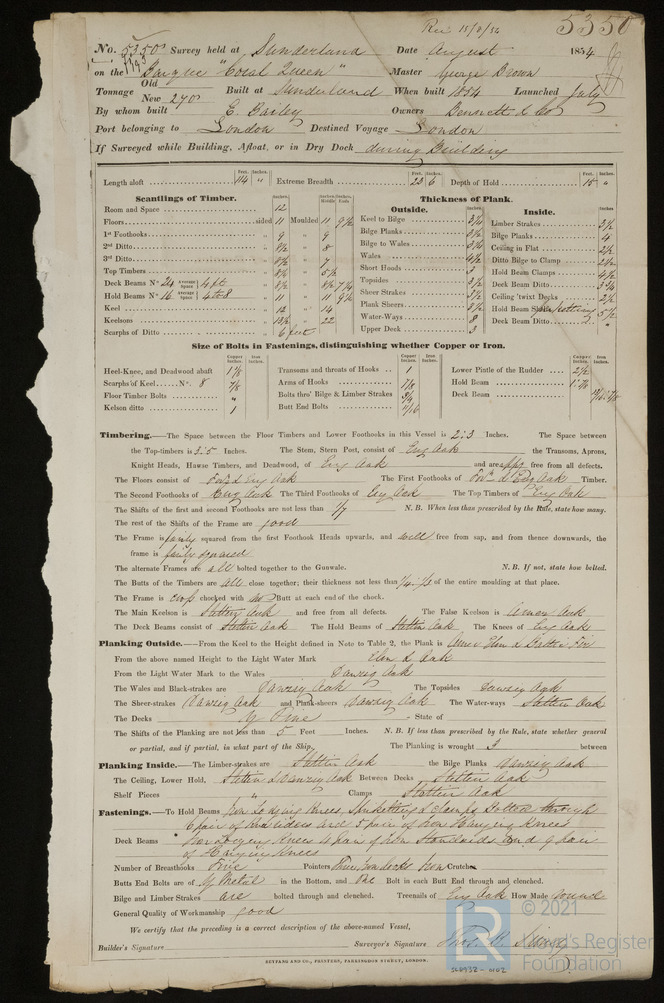 Rec 15/8/54
5350
No. 5350 Survey held at Sunderland Date August 1854
on the Barque "Coral Queen" Master George Brown
Tonnage Old New 270 Built at Sunderland When built 1854 Launched July
By whom built E. Bailey Owners Bennett & Co
Port belonging to London Destined Voyage London
If Surveyed while Building, Afloat, or in Dry Dock during Building
Length aloft 114 " Extreme Breadth 23 6 Depth of Hold 15 "
Scantlings of Timber.
Room and Space 12
Floors sided 11 Moulded 11 9½
1st Foothooks 9 " 9
2nd Ditto 8½ " 8
3rd Ditto 8½ " 7
Top Timbers 8½ " 5½
Deck Beams No. 24 Average Space 4 ft 8½ " 8½ 7¼
Hold Beams No. 16 Average Space 4 to 8 11 " 11 9½
Keel 12 " 14
Keelsons 13½ " 22
Scarphs of Ditto 6 feet
Thickness of Plank.
Outside.
Keel to Bilge
Bilge Planks
Bilge to Wales
Wales 4½
Short Hoods 3
Topsides
Sheer Strakes
Plank Sheers
Water-Ways 8
Upper Deck 3
Inside.
Limber Strakes 3½
Bilge Planks 4
Ceiling in Flat 2½
Ditto Bilge to Clamp 2½
Hold Beam Clamps 4½
Deck Beam Ditto
Ceiling 'twixt Decks 2½
Hold Beam 5½
Deck Beam Ditto "
Size of Bolts in Fastenings, distinguishing whether Copper or Iron.
Heel-Knee, and Deadwood abaft 1⅛
Scarphs of Keel No. 8 ⅞
Floor Timber Bolts "
Kelson ditto 1
Transoms and throats of Hooks 1
Arms of Hooks ⅞
Bolts thro' Bilge & Limber Strakes ¾
Butt End Bolts 11/16
Lower Pintle of the Rudder 2½
Hold Beam
Deck Beam
Timbering.—The Space between the Floor Timbers and Lower Foothooks in this Vessel is 2:3 Inches. The Space between
the Top-timbers is 3:5 Inches. The Stem, Stern Post, consist of Eng Oak the Transoms, Aprons,
Knight Heads, Hawse Timbers, and Deadwood, of Eng Oak and are free from all defects.
The Floors consist of Eng Oak The First Foothooks of Eng Oak Timber.
The Second Foothooks of Eng Oak The Third Foothooks of Eng Oak The Top Timbers of Eng Oak
The Shifts of the first and second Foothooks are not less than 1/7 N.B. When less than prescribed by the Rule, state how many.
The rest of the Shifts of the Frame are good
The Frame is fairly squared from the first Foothook Heads upwards, and well free from sap, and from thence downwards, the
frame is fairly squared
The alternate Frames are all bolted together to the Gunwale. N.B. If not, state how bolted.
The Butts of the Timbers are all close together; their thickness not less than ¼ of the entire moulding at that place.
The Frame is chocked with Butt at each end of the chock.
The Main Keelson is Stettin Oak and free from all defects. The False Keelson is Oak
The Deck Beams consist of Stettin Oak The Hold Beams of Stettin Oak The Knees of Eng Oak
Planking Outside.—From the Keel to the Height defined in Note to Table 2, the Plank is Elm & Baltic Fir
From the above named Height to the Light Water Mark Elm & Oak
From the Light Water Mark to the Wales Danzig Oak
The Wales and Black-strakes are Danzig Oak The Topsides Danzig Oak
The Sheer-strakes Danzig Oak and Plank-sheers Danzig Oak The Water-ways Stettin Oak
The Decks Y Pine State of
The Shifts of the Planking are not less than 5 Feet Inches. N.B. If less than prescribed by the Rule, state whether general
or partial, and if partial, in what part of the Ship. The Planking is wrought 3 between
Planking Inside.—The Limber-strakes are Stettin Oak the Bilge Planks Danzig Oak
The Ceiling, Lower Hold, Stettin & Danzig Oak Between Decks Stettin Oak
Shelf Pieces " Clamps Stettin Oak
Fastenings.—To Hold Beams Iron Lodging Knees, Spirketting & clamps bolted through
6 pair of Iron riders and 5 pair of Iron Hanging Knees
Deck Beams Iron Lodging Knees 4 pair of Iron Standards and 9 pair
of Hanging Knees
Number of Breasthooks Five Pointers Three Iron Crutches
Butts End Bolts are of Y Metal in the Bottom, and One Bolt in each Butt End through and clenched.
Bilge and Limber Strakes are bolted through and clenched. Treenails of Eng Oak How Made round
General Quality of Workmanship good
We certify that the preceding is a correct description of the above-named Vessel,
Builder's Signature Surveyor's Signature Thos. B. Simey
SEYFANG AND CO., PRINTERS, FARRINGDON STREET, LONDON.
LR © 2021
Lloyd's Register
Foundation